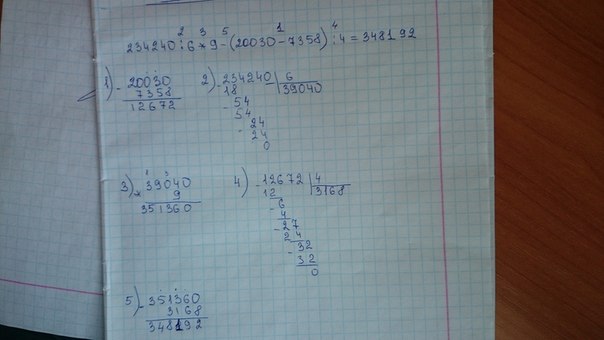 2 3 5 1 4
234240:6*9-(20030-7358):4=348192
1) -20030
7358
12672
2) -234240 6
18 39040
-54
54
-24
24
0
3) 1 3
*39040
9
351360
4) -12672 4
12 3168
-6
4
-27
24
-32
32
0
5) -351360
3168
348192